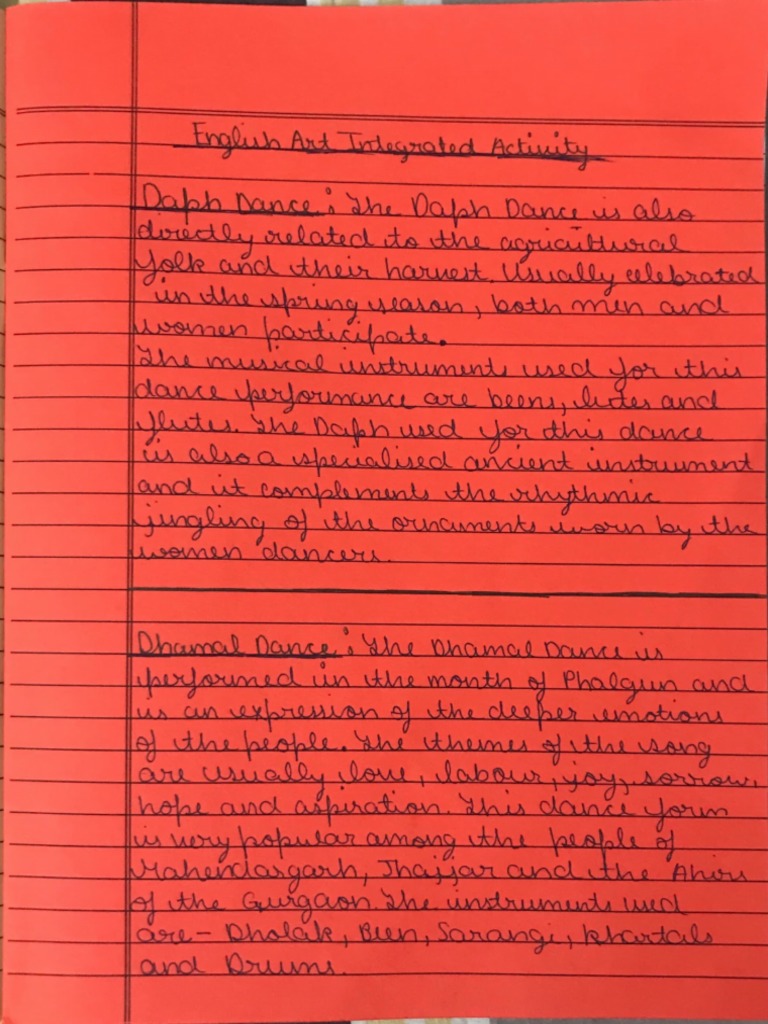 English Art Integrated Activity
Daph Dance : The Daph Dance is also
directly related to the agricultural
folk and their harvest. Usually celebrated
in the spring season, both men and
women participate.
The musical instruments used for this
dance performance are beens, lutes and
flutes. The Daph used for this dance
is also a specialised ancient instrument
and it complements the rhythmic
jungling of the ornaments worn by the
women dancers.
Dhamal Dance : The Dhamal Dance is
performed in the month of Phalgun and
is an expression of the deeper emotions
of the people. The themes of the song
are usually love, labour, joy, sorrow,
hope and aspiration. This dance form
is very popular among the people of
Mahendargarh, Jhajjar and the Ahirs
of the Gurgaon. The instruments used
are - Dholak, Been, Sarangi, khartals
and Drums.